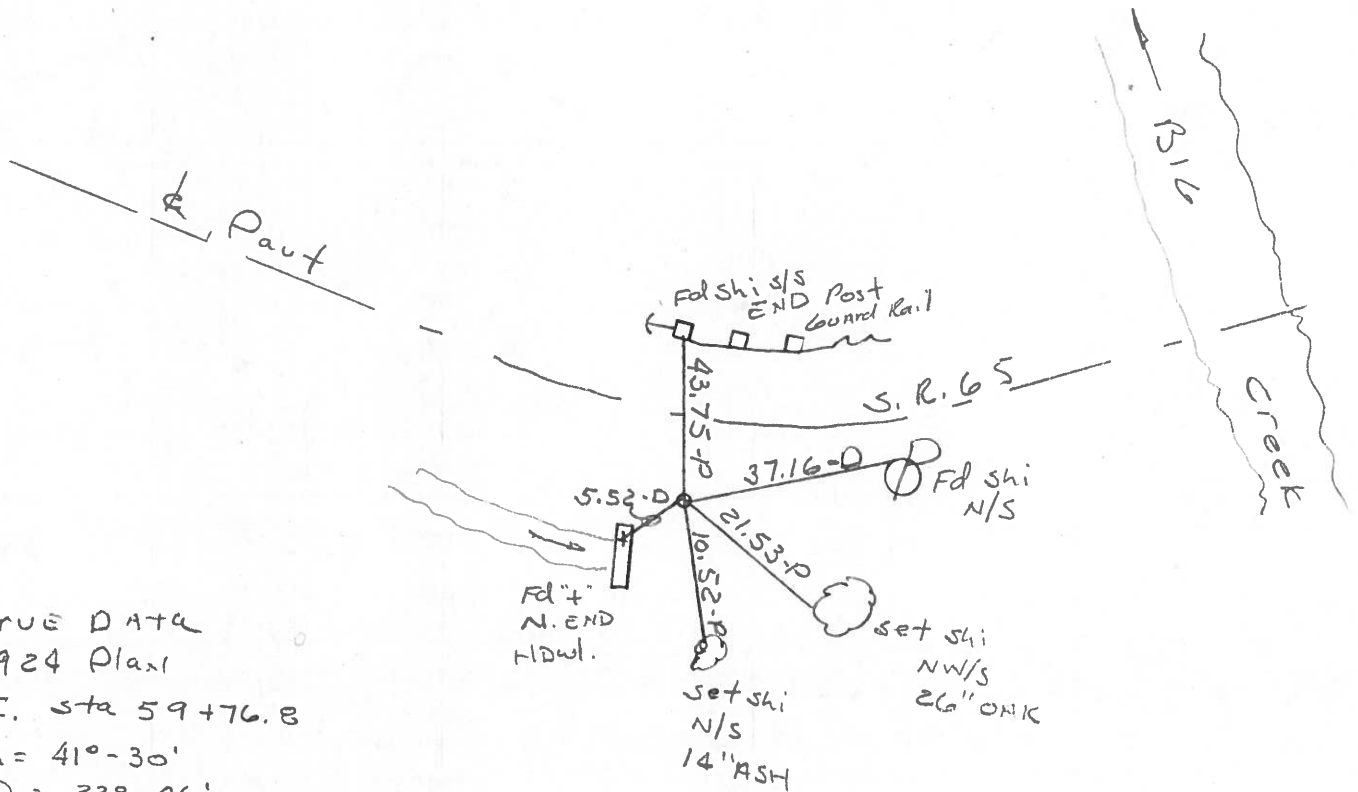 BIG
Creek
℄ Pavt
Fd shi s/s
END Post
Guard Rail
43.75-P
S.R. 65
37.16-D
Fd shi
N/S
5.52-D
21.53-P
10.52-P
Fd "+"
N. END
HDwl.
set shi
NW/S
26" OAK
set shi
N/S
14" ASH
DATA
924 Plan
sta 59+76.8
= 41°-30'